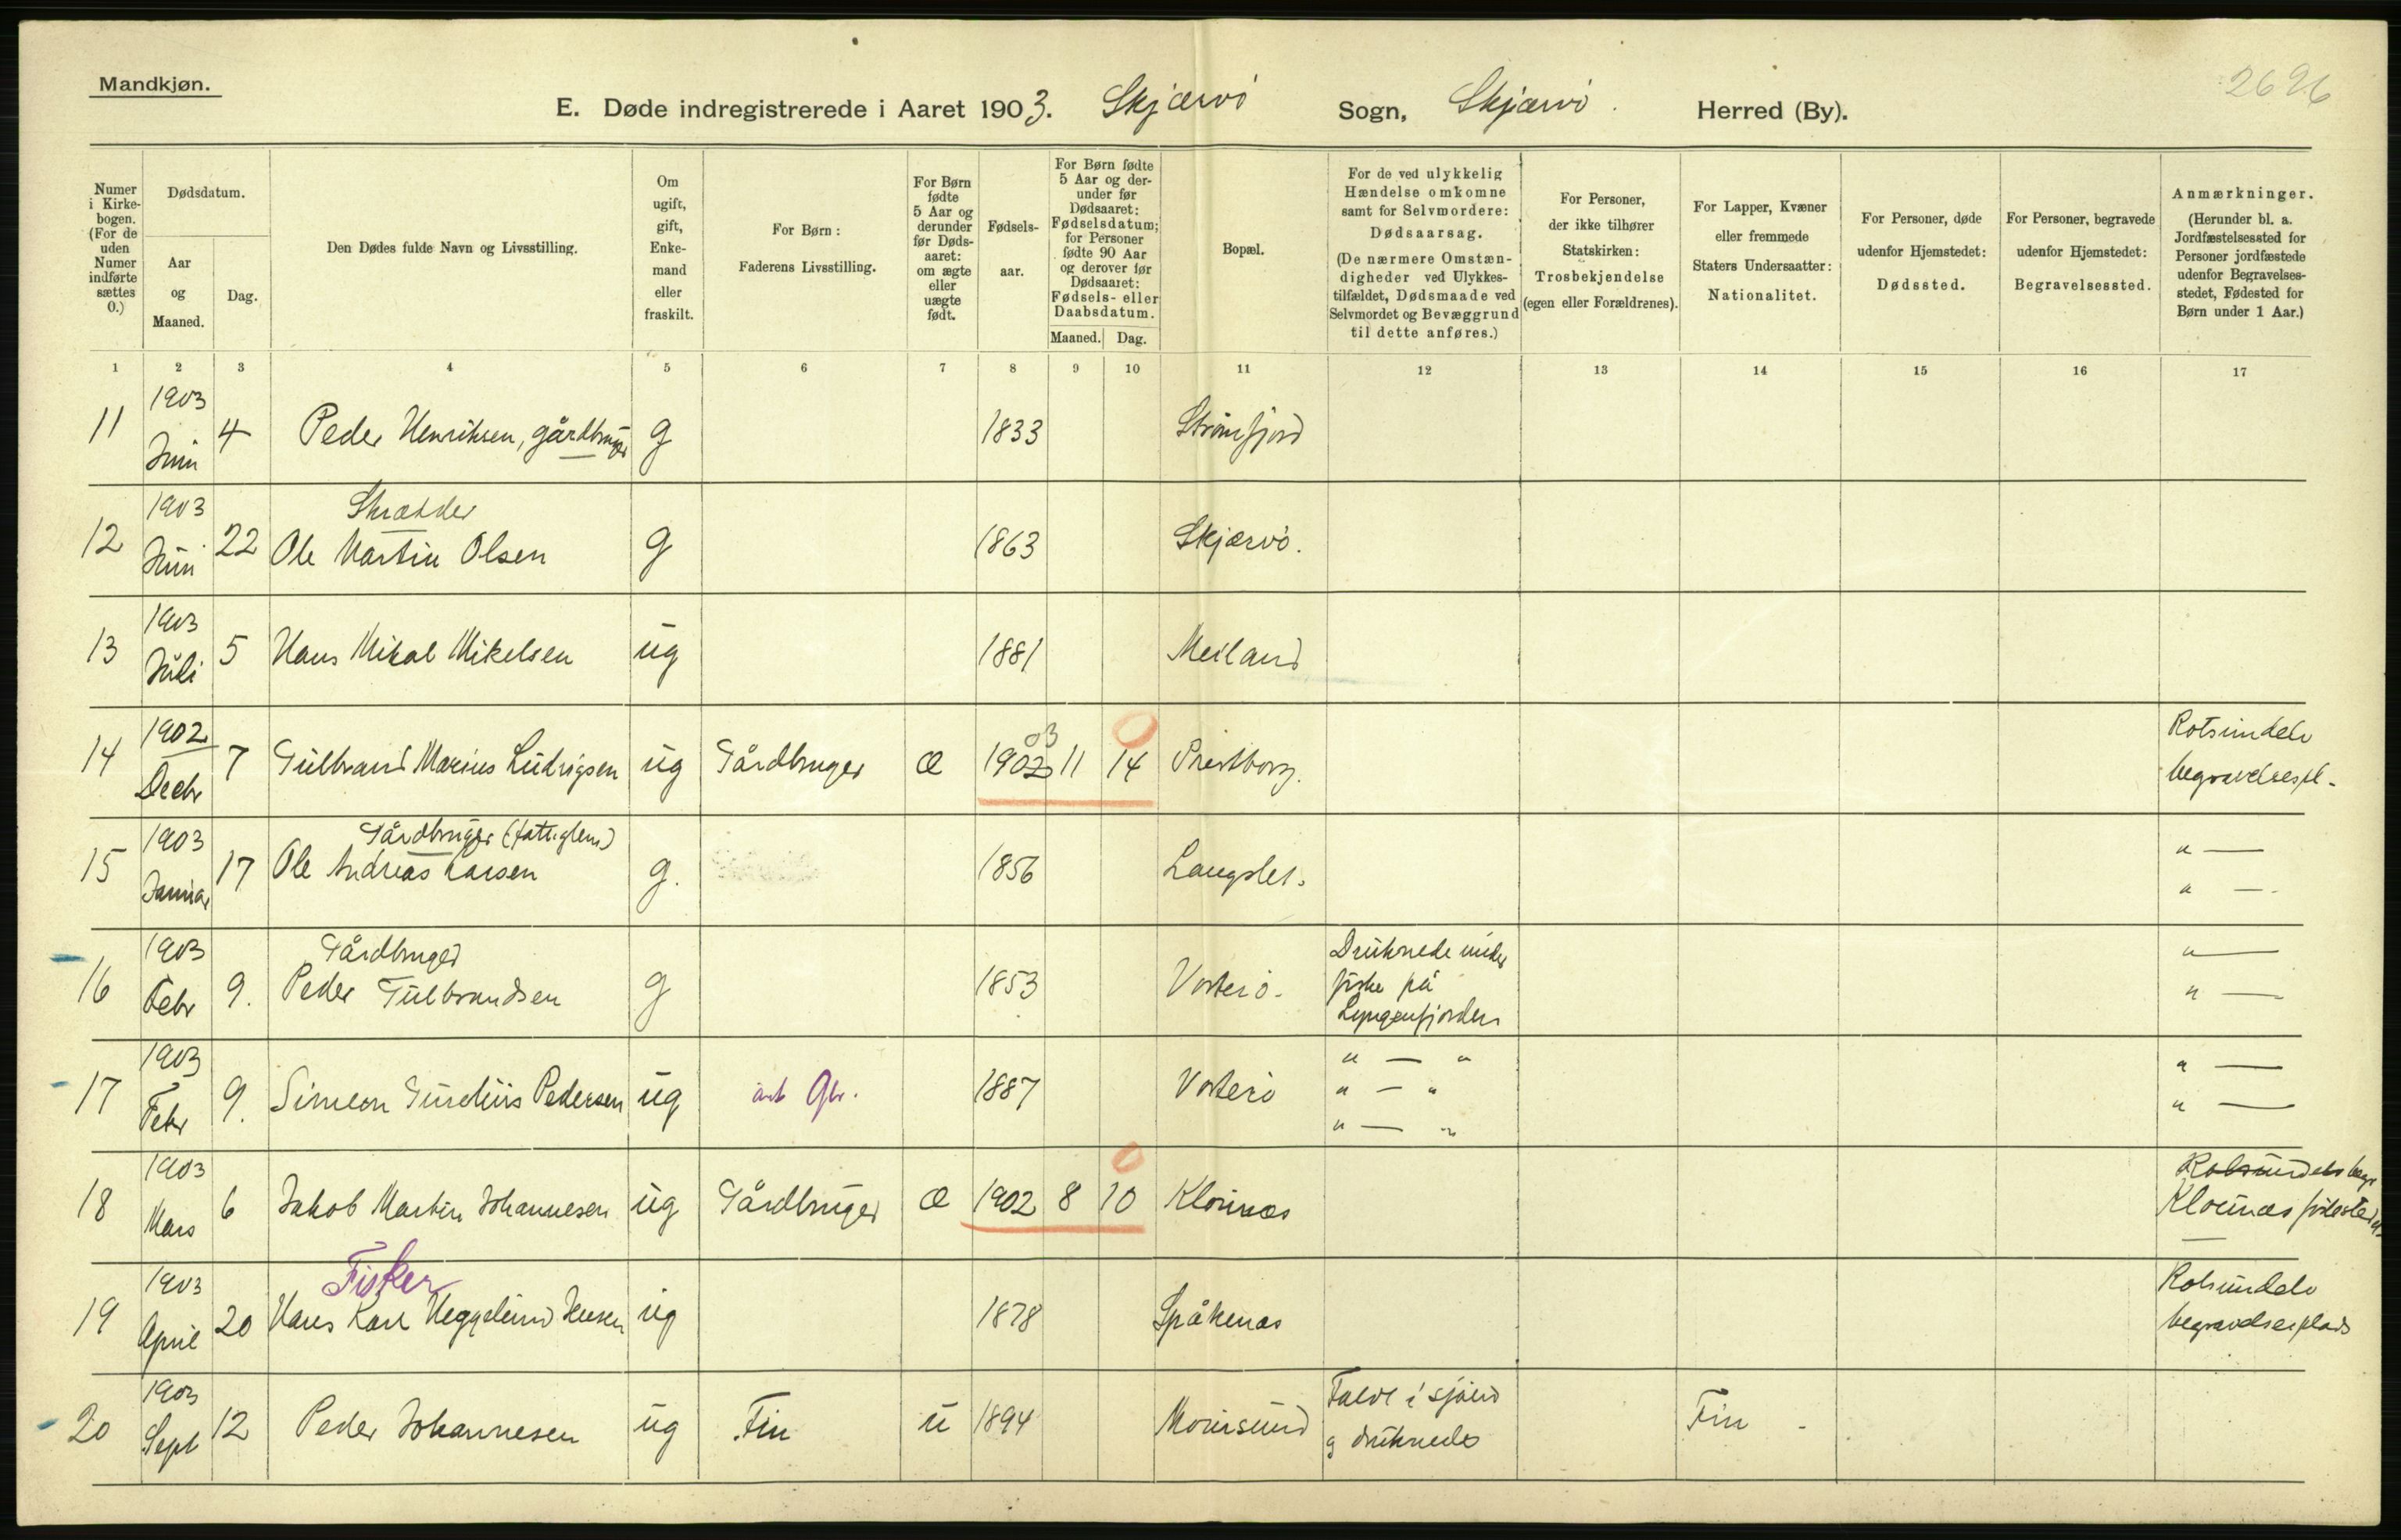 Mandkjøn.
2696
E. Døde indregistrerede i Aaret 1903. Skjærvö Sogn, Skjærvö. Herred (By).
Numer
i Kirke-
bogen.
(For de
uden
Numer
indførte
sættes
0.)
Dødsdatum.
Aar
og
Maaned.
Dag.
Den Dødes fulde Navn og Livsstilling.
Om
ugift,
gift,
Enke-
mand
eller
fraskilt.
For Børn:
Faderens Livsstilling.
For Børn
fødte
5 Aar og
derunder
før Døds-
aaret:
om ægte
eller
uægte
født.
Fødsels-
aar.
For Børn fødte
5 Aar og der-
under før
Dødsaaret:
Fødselsdatum;
for Personer
fødte 90 Aar
og derover før
Dødsaaret:
Fødsels- eller
Daabsdatum.
Maaned. Dag.
Bopæl.
For de ved ulykkelig
Hændelse omkomne
samt for Selvmordere:
Dødsaarsag.
(De nærmere Omstæn-
digheder ved Ulykkes-
tilfældet, Dødsmaade ved
Selvmordet og Bevæggrund
til dette anføres.)
For Personer,
der ikke tilhører
Statskirken:
Trosbekjendelse
(egen eller Forældrenes).
For Lapper, Kvæner
eller fremmede
Staters Undersaatter:
Nationalitet.
For Personer, døde
udenfor Hjemstedet:
Dødssted.
For Personer, begravede
udenfor Hjemstedet:
Begravelsessted.
Anmærkninger.
(Herunder bl. a.
Jordfæstelsessted for
Personer jordfæstede
udenfor Begravelses-
stedet, Fødested for
Børn under 1 Aar.)
1 2 3 4 5 6 7 8 9 10 11 12 13 14 15 16 17
1903
11 Juni 4 Peder Henriksen, gårdbruger g 1833 Strömfjord
1903 Skrædder
12 Juni 22 Ole Martin Olsen g 1863 Skjærvö.
1903
13 Juli 5 Hans Mikal Mikelsen ug 1881 Meiland
1902 03 0 Rotsundelv
14 Decbr 7 Gulbrand Marius Ludvigsen ug Gårdbruger æ 1902 11 14 begravelsespl.
1903 Gårdbruger (fattiglem) " —
15 Januar 17 Ole Andreas Larsen g. 1856 Langslet. " —
1903 Gårdbruger Druknede under " —
16 Febr 9. Peder Gulbrandsen g 1853 Vorterö. fiske på " —
Lyngenfjorden
1903 " — " " —
17 Febr 9. Simeon Pedersen ug 1887 Vorterö " — " " —
" — "
1903 0 Rotsundelv begr
18 Mars 6 Jakob Martin Johannesen ug Gårdbruger æ 1902 8 10 Klöunæs Klöunæs födested
1903 Fisker Rotsundelv
19 April 20 Hans Karl Heggelund Hensen ug 1878 Spåkenæs begravelsesplads
1903 Faldt i sjöen
20 Sept 12 Peder Johannesen ug Fin u 1894 Maursund og druknede Fin